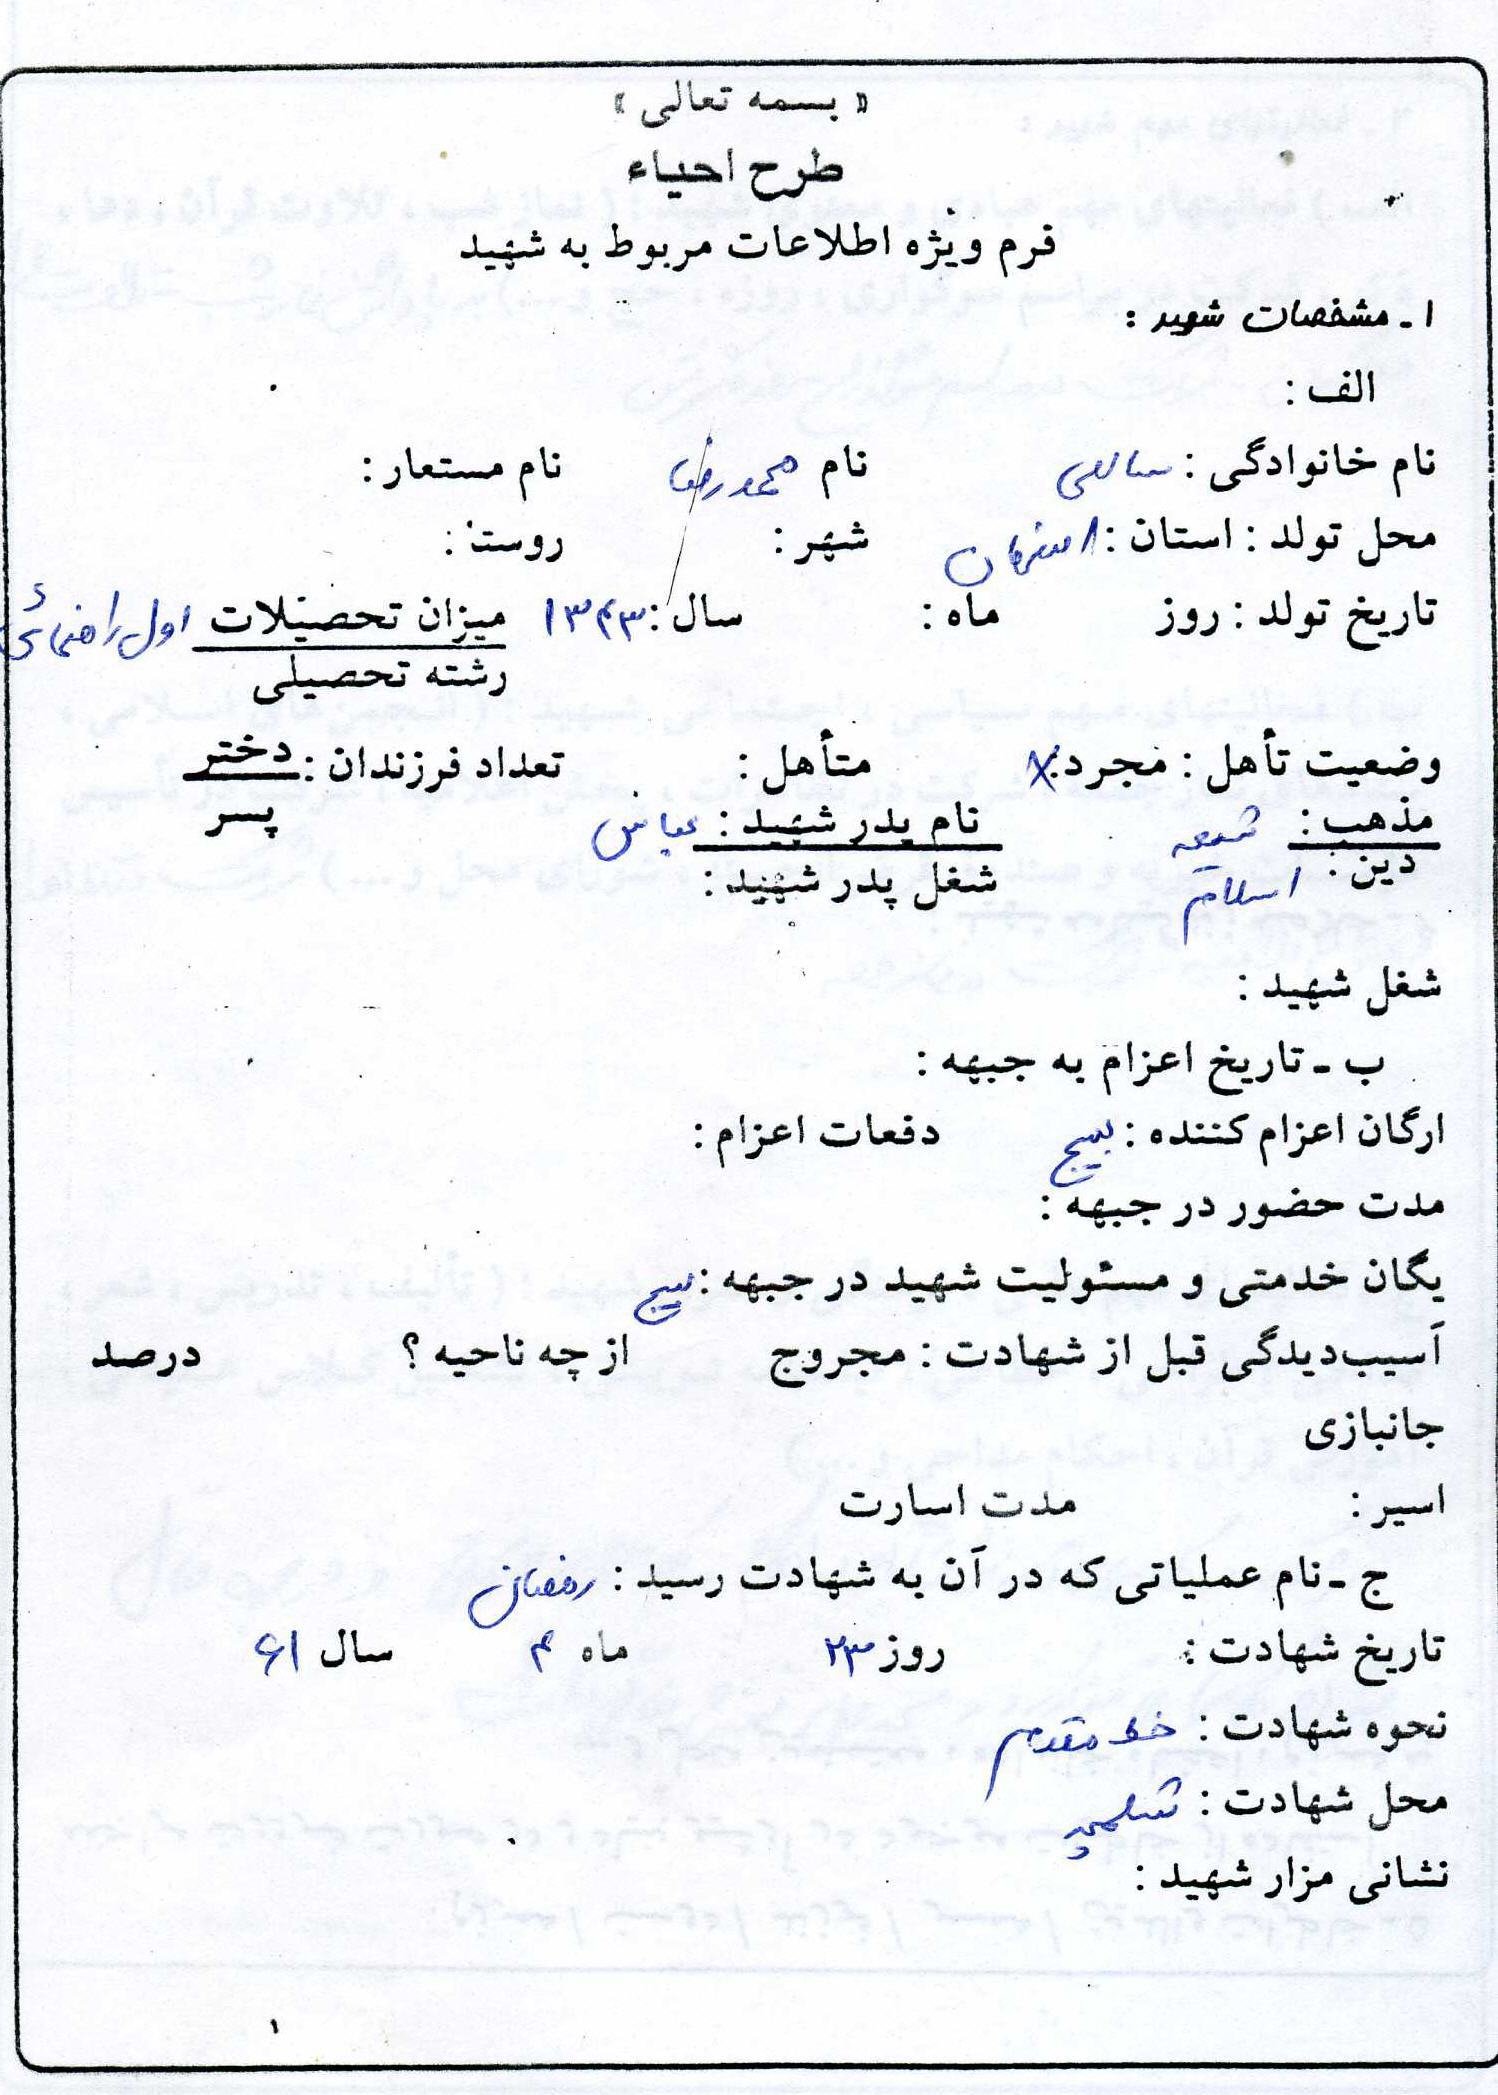 « بسمه تعالی »
طرح احیاء
فرم ویژه اطلاعات مربوط به شهید
۱ ـ مشخصات شهید :
الف :
نام خانوادگی : نام محمدرضا نام مستعار :
محل تولد : استان : اصفهان شهر : روستا :
تاریخ تولد : روز ماه : سال : ۱۳۴۳ میزان تحصیلات اول راهنمائی
رشته تحصیلی
وضعیت تأهل : مجرد : X متأهل : تعداد فرزندان : دختر
پسر
مذهب : شیعه نام پدر شهید : عباس
دین : اسلام شغل پدر شهید :
شغل شهید :
ب ـ تاریخ اعزام به جبهه :
ارگان اعزام کننده : بسیج دفعات اعزام :
مدت حضور در جبهه :
یگان خدمتی و مسئولیت شهید در جبهه : بسیج
آسیب‌دیدگی قبل از شهادت : مجروح از چه ناحیه ؟ درصد
جانبازی
اسیر : مدت اسارت
ج ـ نام عملیاتی که در آن به شهادت رسید : رمضان
تاریخ شهادت : روز ۲۳ ماه ۴ سال ۶۱
نحوه شهادت : خط مقدم
محل شهادت : شلمچه
نشانی مزار شهید :
۱